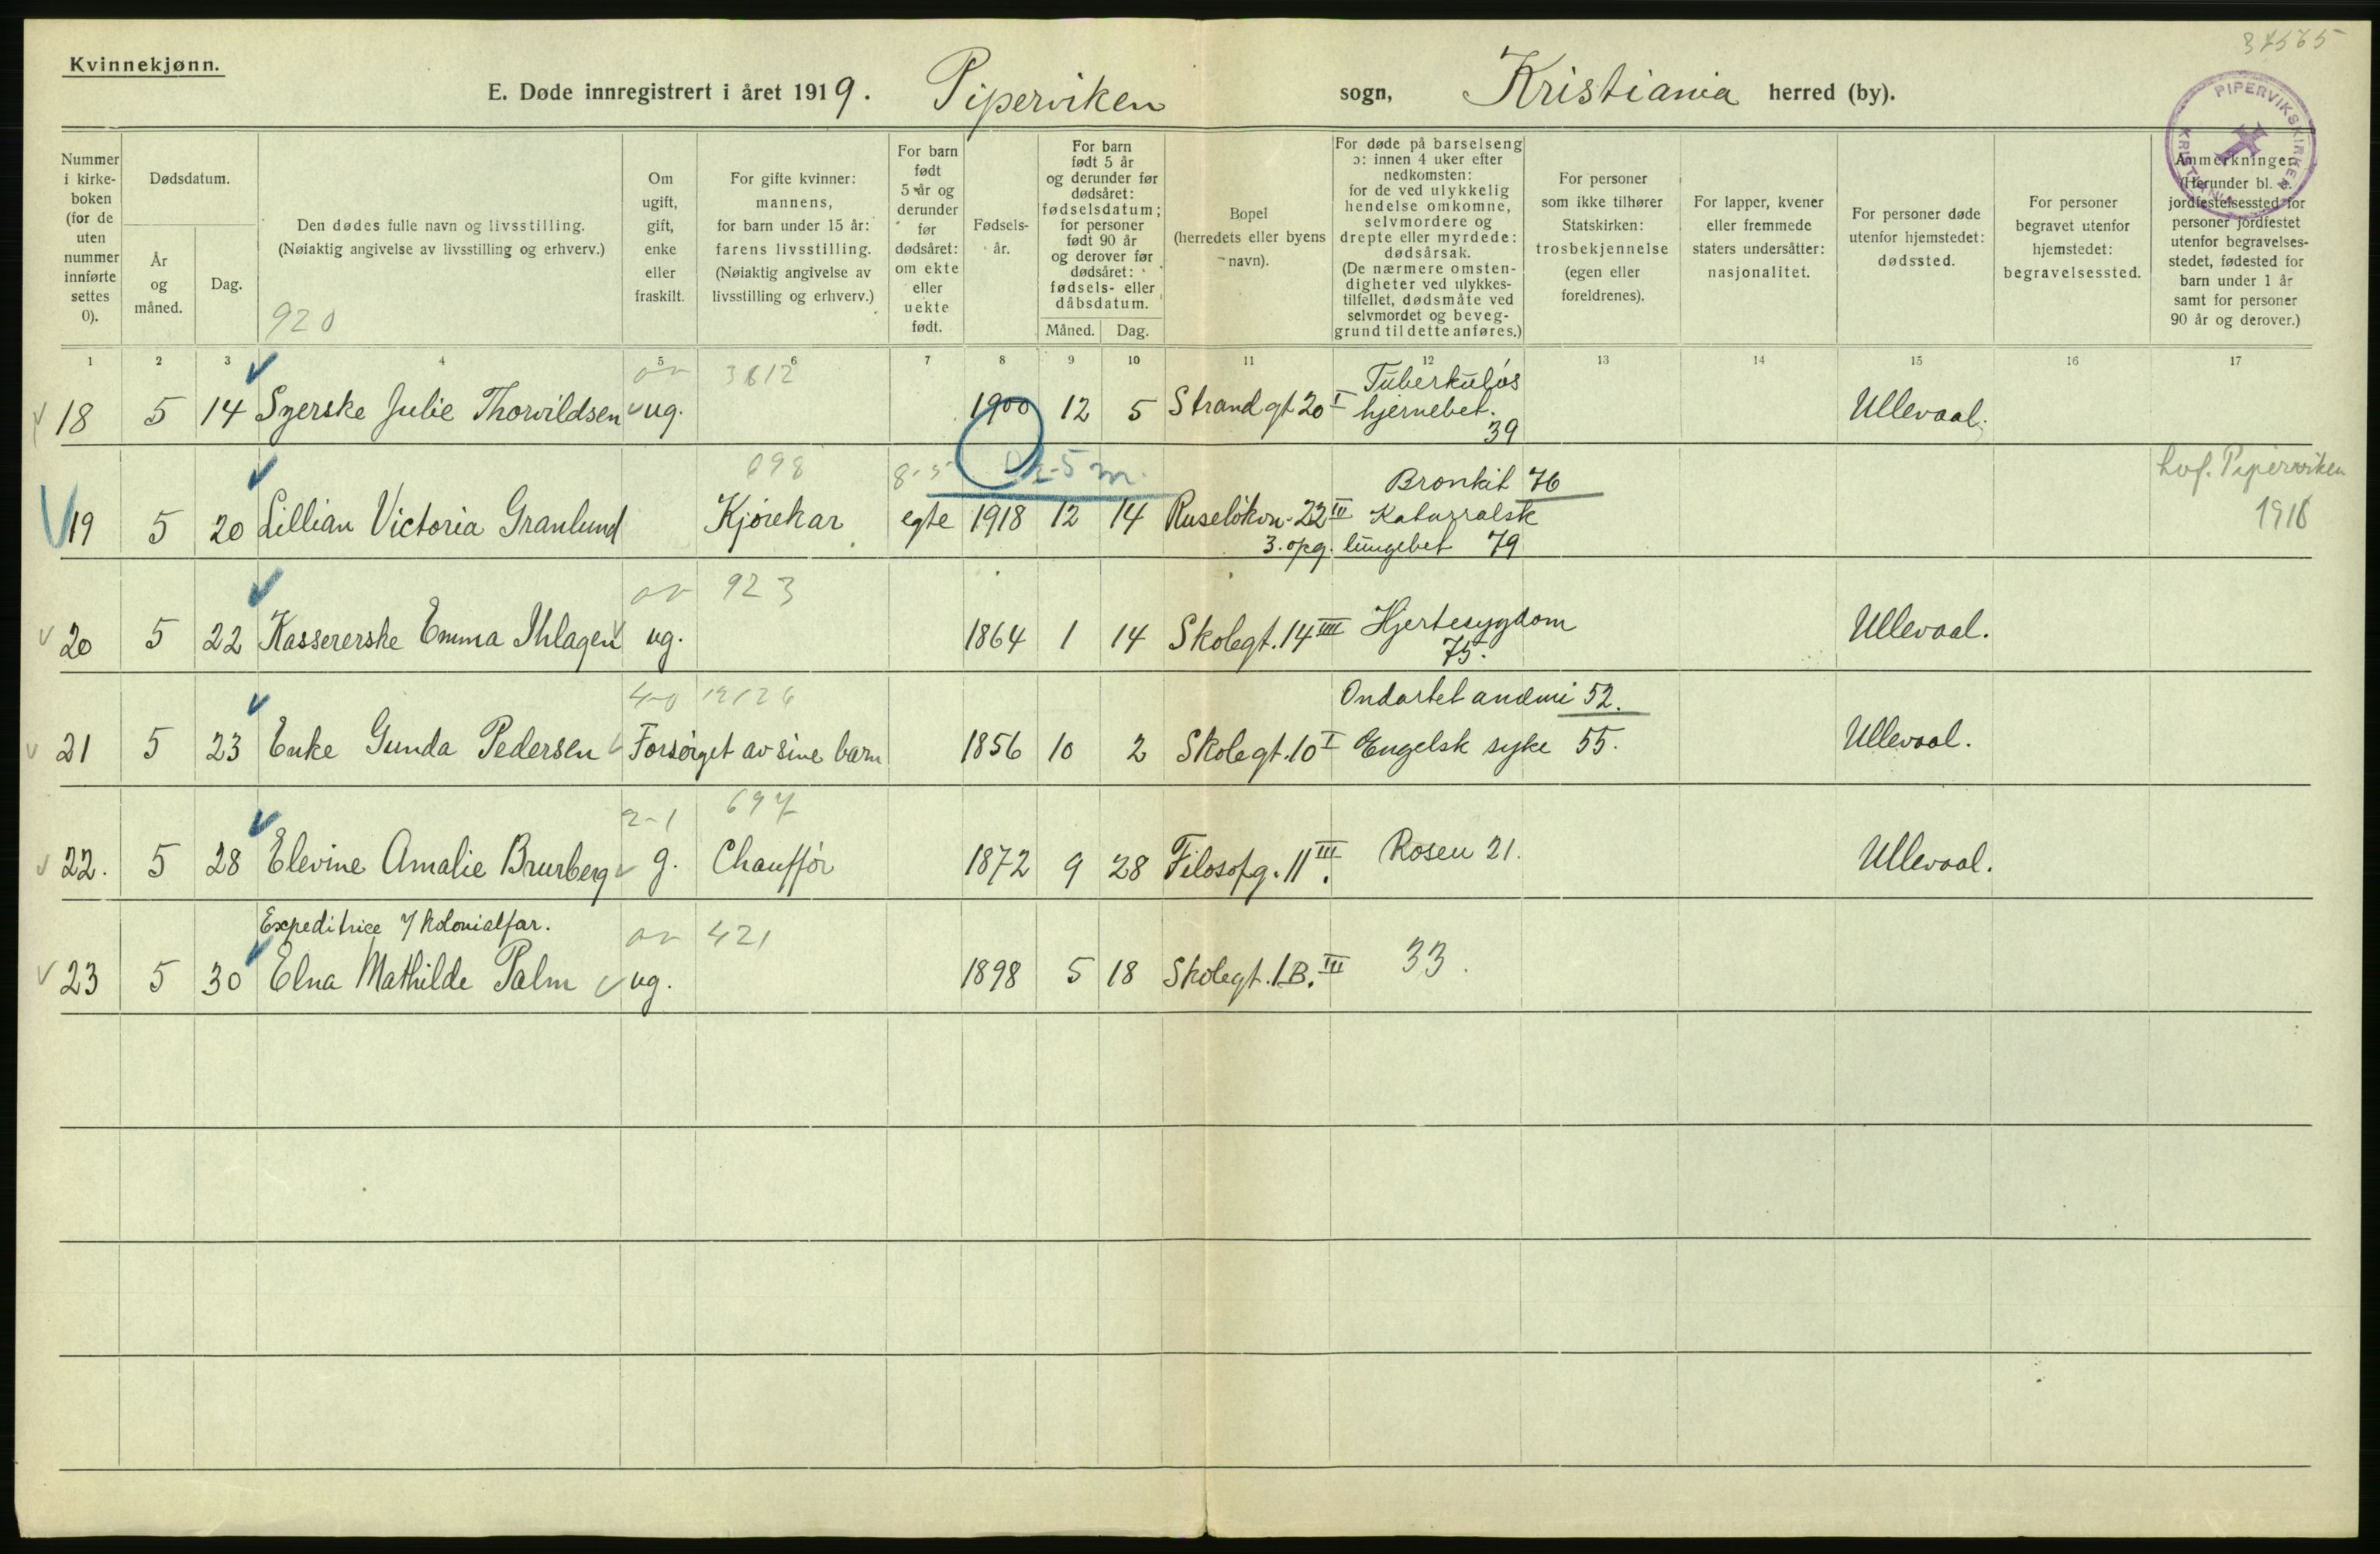 37565
Kvinnekjønn.
E. Døde innregistrert i året 1919. Piperviken sogn, Kristiania herred (by).
PIPERVIKSKIRKEN KRISTIANIA
Nummer i kirke-boken (for de uten nummer innførte settes 0).
Dødsdatum.
År og måned.
Dag.
Den dødes fulle navn og livsstilling.
(Nøiaktig angivelse av livsstilling og erhverv.)
920
Om ugift, gift, enke eller fraskilt.
For gifte kvinner: mannens, for barn under 15 år: farens livsstilling. (Nøiaktig angivelse av livsstilling og erhverv.)
For barn født 5 år og derunder før dødsåret: om ekte eller uekte født.
Fødsels-år.
For barn født 5 år og derunder før dødsåret: fødselsdatum; for personer født 90 år og derover før dødsåret: fødsels- eller dåbsdatum.
Måned. Dag.
Bopel (herredets eller byens navn).
For døde på barselseng ɔ: innen 4 uker efter nedkomsten: for de ved ulykkelig hendelse omkomne, selvmordere og drepte eller myrdede: dødsårsak. (De nærmere omsten-digheter ved ulykkes-tilfellet, dødsmåte ved selvmordet og beveg-grund til dette anføres.)
For personer som ikke tilhører Statskirken: trosbekjennelse (egen eller foreldrenes).
For lapper, kvener eller fremmede staters undersåtter: nasjonalitet.
For personer døde utenfor hjemstedet: dødssted.
For personer begravet utenfor hjemstedet: begravelsessted.
Anmerkninger. (Herunder bl. a. jordfestelsessted for personer jordfestet utenfor begravelses-stedet, fødested for barn under 1 år samt for personer 90 år og derover.)
1 2 3 4 5 6 7 8 9 10 11 12 13 14 15 16 17
3612 Tuberkuløs
18 5 14 Syerske Julie Thorvildsen ug. 1900 12 5 Strandgt 20 I hjernebet. Ullevaal.
39
698 8-5 5 m. Bronkit 76 Piperviken
19 5 20 Lillian Victoria Granlund Kjørekar egte 1918 12 14 Ruseløkv. 22 III Katarralsk 1918
3. opg. lungebet 79
923
20 5 22 Kassererske Emma Ihlagen ug. 1864 1 14 Skolegt. 14 IIII Hjertesygdom Ullevaal.
75.
4-0 19126 Ondartet anæmi 52.
21 5 23 Enke Gunda Pedersen Forsørget av sine barn 1856 10 2 Skolegt. 10 I Engelsk syke 55. Ullevaal.
2-1 697
22. 5 28 Elevine Amalie Brurberg g. Chauffør 1872 9 28 Filosofg. 11 III. Rosen 21. Ullevaal.
Expeditrice i/ kolonialfor. 421
23 5 30 Elna Mathilde Palm ug. 1898 5 18 Skolegt. 1B. III 33.